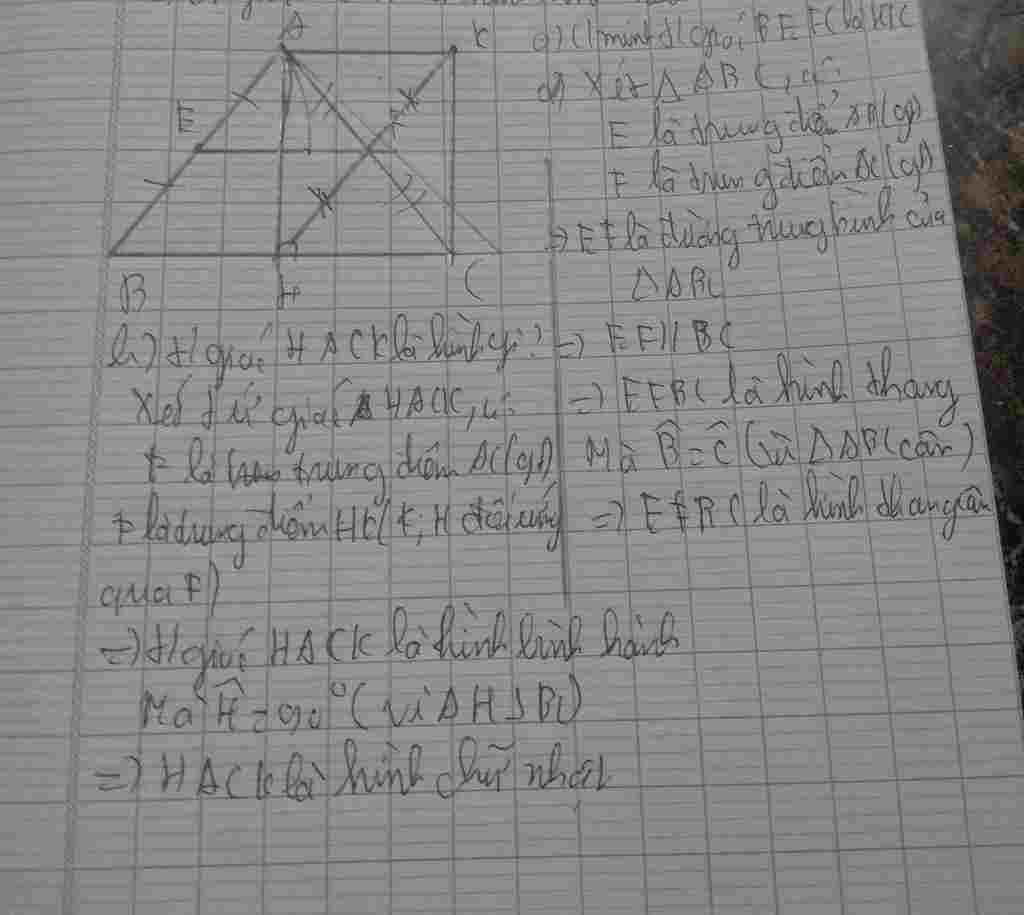 A
K
E
F
B
H
C
a) C/minh t/giác BEFC là HTC
a) Xét Δ ABC, có:
E là trung điểm AB(gt)
F là trung điểm AC(gt)
=> EF là đường trung bình của
ΔABC
=> EF // BC
=> EFBC là hình thang
Mà B̂ = Ĉ (vì ΔABC cân)
=> EFBC là hình thang cân
b) t/giác HACK là hình gì?
Xét tứ giác HACK, có:
F là trung điểm AC(gt)
F là trung điểm HK(K; H đối xứng
qua F)
=> t/giác HACK là hình bình hành
Mà Ĥ = 90° (vì AH ⊥ BC)
=> HACK là hình chữ nhật